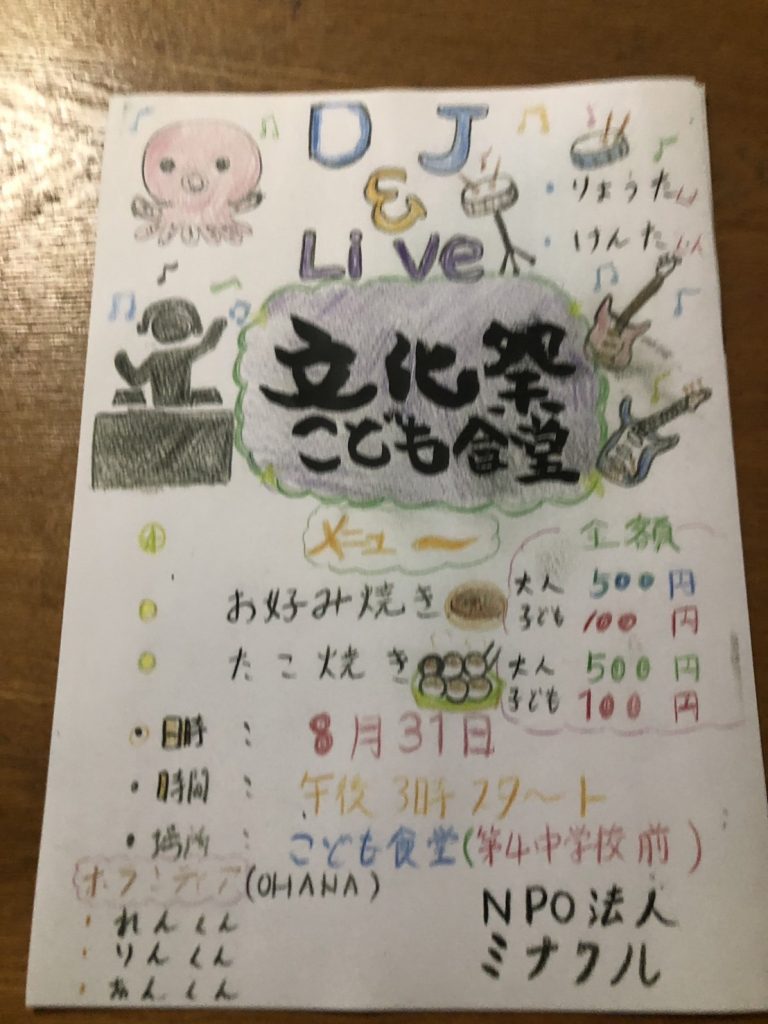 DJ
&
Live
・りょうたくん
・けんたくん
文化祭
こども食堂
メニュー
金額
お好み焼き
大人 500円
子ども 100円
たこ焼き
大人 500円
子ども 100円
・日時 : 8月31日
・時間 : 午後3時スタート
・場所 : こども食堂(第4中学校前)
ボランティア(OHANA)
・れんくん
・りんくん
NPO法人
ミナクル